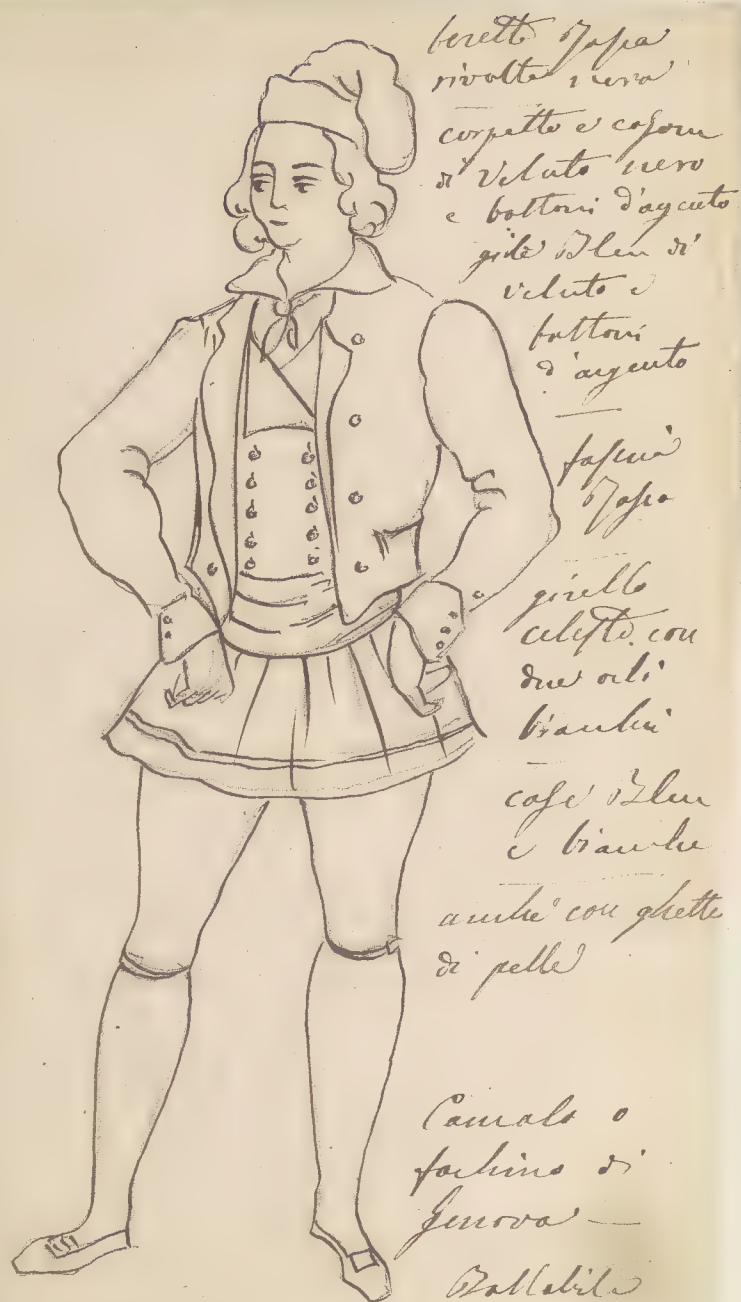 beretto Rossa
rivolta nera
corpetto e calzon
di Veluto nero
e bottoni d'argento
gilè Bleu di
veluto e
bottoni
d'argento
fascia
Rossa
girello
celeste con
due orli
bianchi
calze Bleu
e bianche
anche con ghette
di pelle
Camalo o
fachino di
Genova
Ballabile